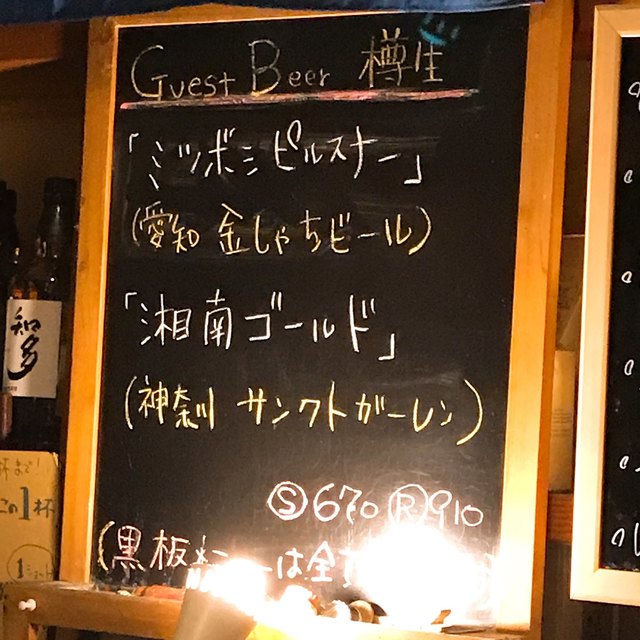 Guest Beer 樽生
「ミツボシピルスナー」
(愛知 金しゃちビール)
「湘南ゴールド」
(神奈川 サンクトガーレン)
Ⓢ670 Ⓡ910
(黒板メニューは全
知多
杯まで!
この1杯